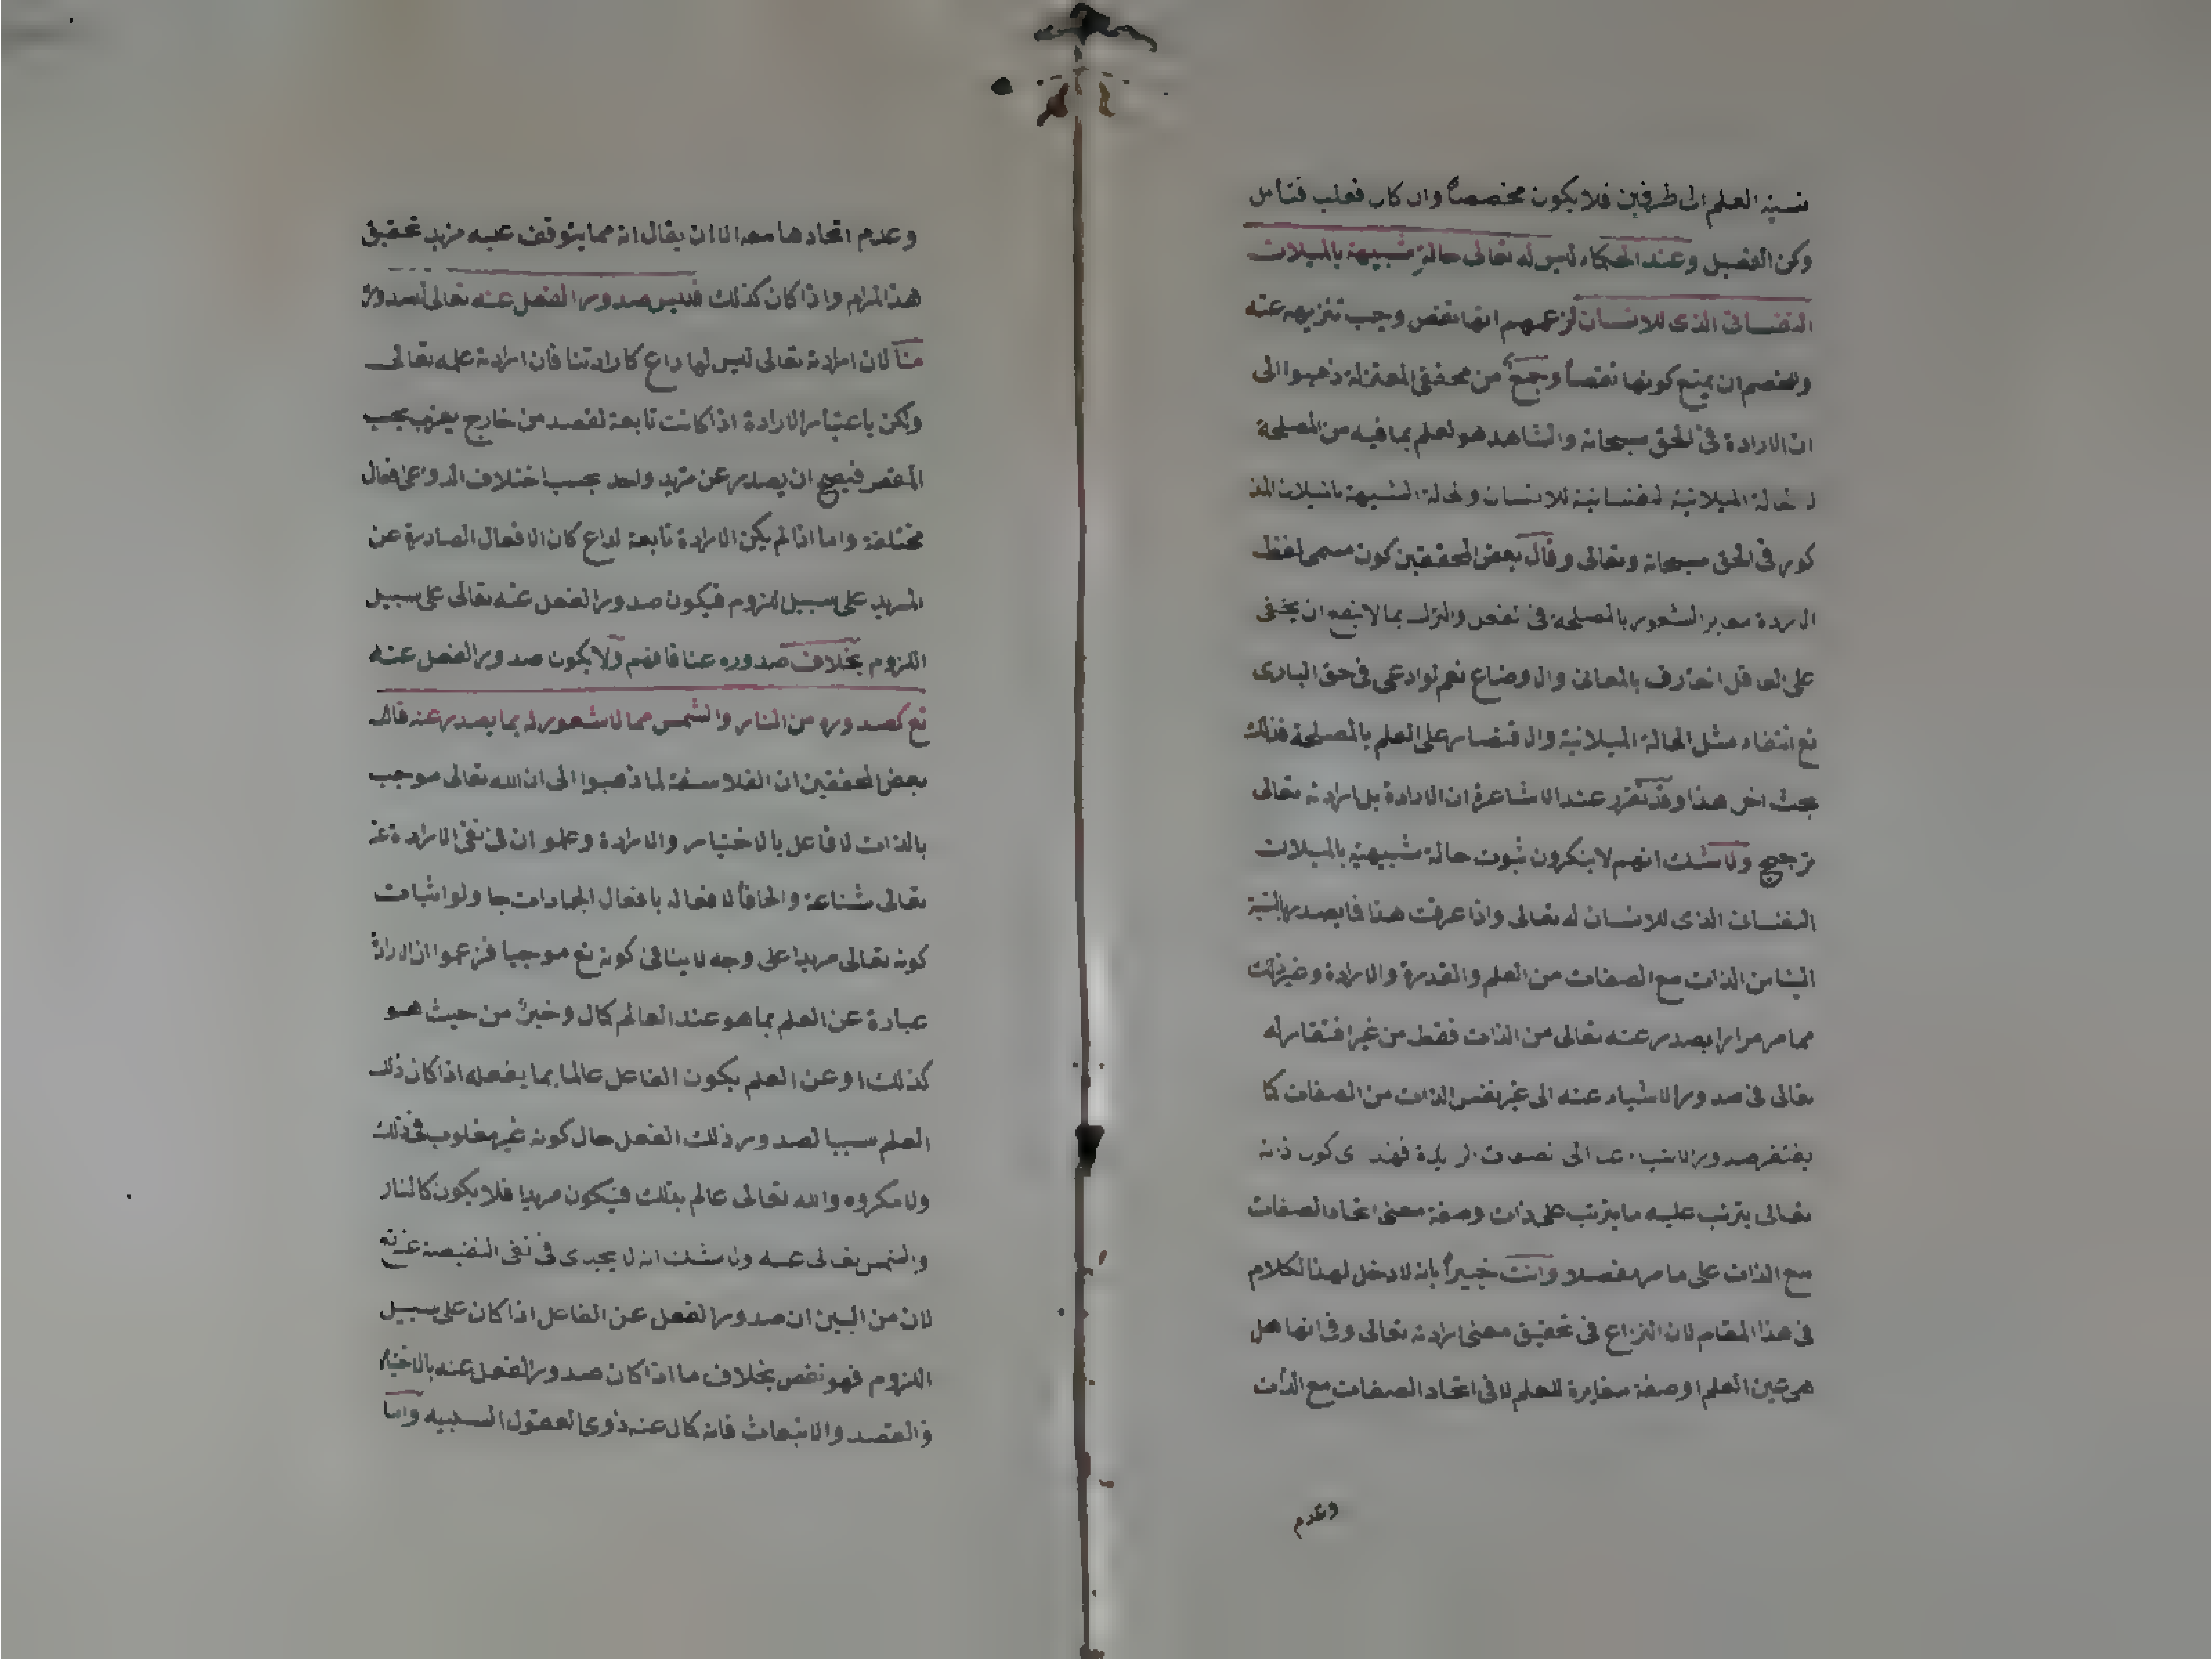 نسبة العلم الى طرفين فلا يكون مخصصاً وان كان فعليه فتأمل
وكن الفصيل وعند الحكماء ليس له تعالى حالة شبيهة بالميلات
النفساني الذى للانسان لزعمهم انها نقص وجب تنزيهه عنه
وللخصم ان يمنع كونها نقصاً وجمع من محققى المعتزلة ذهبوا الى
ان الارادة فى الحق سبحانه والشاهد هو العلم بما فيه من المصلحة
الحالة الميلانية النفسانية للانسان والحالة الشبيهة بالميلان المذ
كور فى الحق سبحانه وتعالى وقال بعض المحققين كون مسمى لفظ
الارادة مغاير الشعور بالمصلحة فى الفعل والترك بما لا ينبغى ان يخفى
على العاقل العارف بالمعانى والاوضاع نعم لو ادعى فى حق البارى
تع انتفاء مثل الحالة الميلانية والاقتصار على العلم بالمصلحة فذلك
بحث اخر هذا وقد تقرر عند الاشاعرة ان الارادة بل ارادته تعالى
ترجيح ولا شك انهم لا ينكرون ثبوت حالة شبيهة بالميلات
النفسانى الذى للانسان له تعالى واذا عرفت هذا فما يصدر بالنسبة
الينا من الذات مع الصفات من العلم والقدرة والارادة وغير ذلك
مما مر مرارا يصدر عنه تعالى من الذات فقط من غير افتقار له
تعالى فى صدور الاشياء عنه الى غير نفس الذات من الصفات كما
يفتقر صدور الاشياء عنا الى الصفات الزايدة فهذا كون ذاته
تعالى يترتب عليه ما يترتب على ذات وصفة معنى اتحاد الصفات
مع الذات على ما مر مفصلا وانت خبيراً بانه لا دخل لهذا الكلام
فى هذا المقام لان النزاع فى تحقيق معنى ارادته تعالى وفى انها هل
هى عين العلم او صفة مغايرة للعلم لا فى اتحاد الصفات مع الذات
وعدم
وعدم اتحادها معه الا ان يقال انه مما يتوقف عليه مزيد تحقيق
هذا المرام واذا كان كذلك فليس صدور الفعل عنه تعالى كصدوره
منا لان ارادته تعالى ليس لها داع كارادتنا فان ارادته علمه تعالى
ولكن باعتبار الارادة اذا كانت تابعة لقصد من خارج يعزب بحسب
المقصر فيصح ان يصدر عن مريد واحد بحسب اختلاف الدواعى افعال
مختلفة واما اذا لم يكن الارادة تابعة لداع كان الافعال الصادرة عن
المريد على سبيل اللزوم فيكون صدور الفعل عنه تعالى على سبيل
اللزوم بخلاف صدوره عنا فافهم ولا يكون صدور الفعل عنه
تع كصدوره من النار والشمس مما لا شعور له بما يصدر عنه قال
بعض المحققين ان الفلاسفة لما ذهبوا الى ان الله تعالى موجب
بالذات لا فاعل بالاختيار والارادة وعلموا ان فى نفى الارادة عنه
تعالى شناعة والحاقاً لافعاله بافعال الجمادات حاولوا اثبات
كونه تعالى مريدا على وجه لا ينافى كونه تع موجبا فزعموا ان الارادة
عبارة عن العلم بما هو عند العالم كمال وخير من حيث هو
كذلك او عن العلم بكون الفاعل عالما بما يفعله اذا كان ذلك
العلم سببا لصدور ذلك الفعل حال كونه غير مغلوب فى ذلك
ولا مكروه والله تعالى عالم بذلك فيكون مريدا فلا يكون كالنار
والشمس تعالى عنه ولا شك انه لا يجدى فى نفى النقيصة عنه تع
لان من البين ان صدور الفعل عن الفاعل اذا كان على سبيل
اللزوم فهو نقص بخلاف ما اذا كان صدور الفعل عنه بالاختيار
والقصد والانبعاث فانه كمال عند ذوى العقول السببيه واما